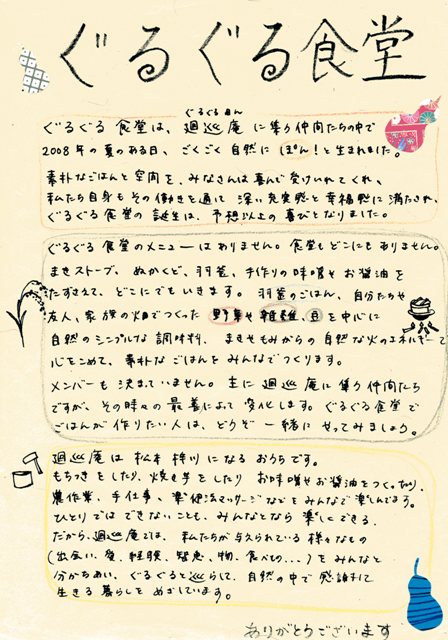 ぐるぐる食堂
ぐるぐるあん
ぐるぐる食堂は、廻巡庵に集う仲間たちの中で
2008年の夏のある日、ごくごく自然に ぽん！と生まれました。
素朴なごはんと空間を、みなさんは喜んで受けいれてくれ、
私たち自身もその働きを通して 深い充実感と幸福感に満たされ、
ぐるぐる食堂の誕生は、予想以上の喜びとなりました。
ぐるぐる食堂のメニューはありません。食堂もどこにもありません。
まきストーブ、ぬかくど、羽釜、手作りの味噌やお醤油を
たずさえて、どこにでもいきます。羽釜のごはん、自分たちや
友人、家族の畑でつくった 野菜や雑穀、豆を中心に
自然のシンプルな調味料、まきやもみがらの自然な火のエネルギーで
心をこめて、素朴なごはんをみんなでつくります。
メンバーも決まっていません。主に廻巡庵に集う仲間たち
ですが、その時々の最善によって変化します。ぐるぐる食堂で
ごはんが作りたい人は、どうぞ一緒にやってみましょう。
廻巡庵は松本 梓川になるおうちです。
もちつきをしたり、焼き芋をしたり お味噌やお醤油をつくったり、
農作業、手仕事、楽健法マッサージなどをみんなで楽しんでます。
ひとりではできないことも、みんなとなら楽しくできる。
だから、廻巡庵では、私たちが与えられている様々なもの
(出会い、愛、経験、知恵、物、食べもの...)をみんなと
分かちあい、ぐるぐると巡らして、自然の中で感謝して
生きる暮らしをめざしています。
ありがとうございます